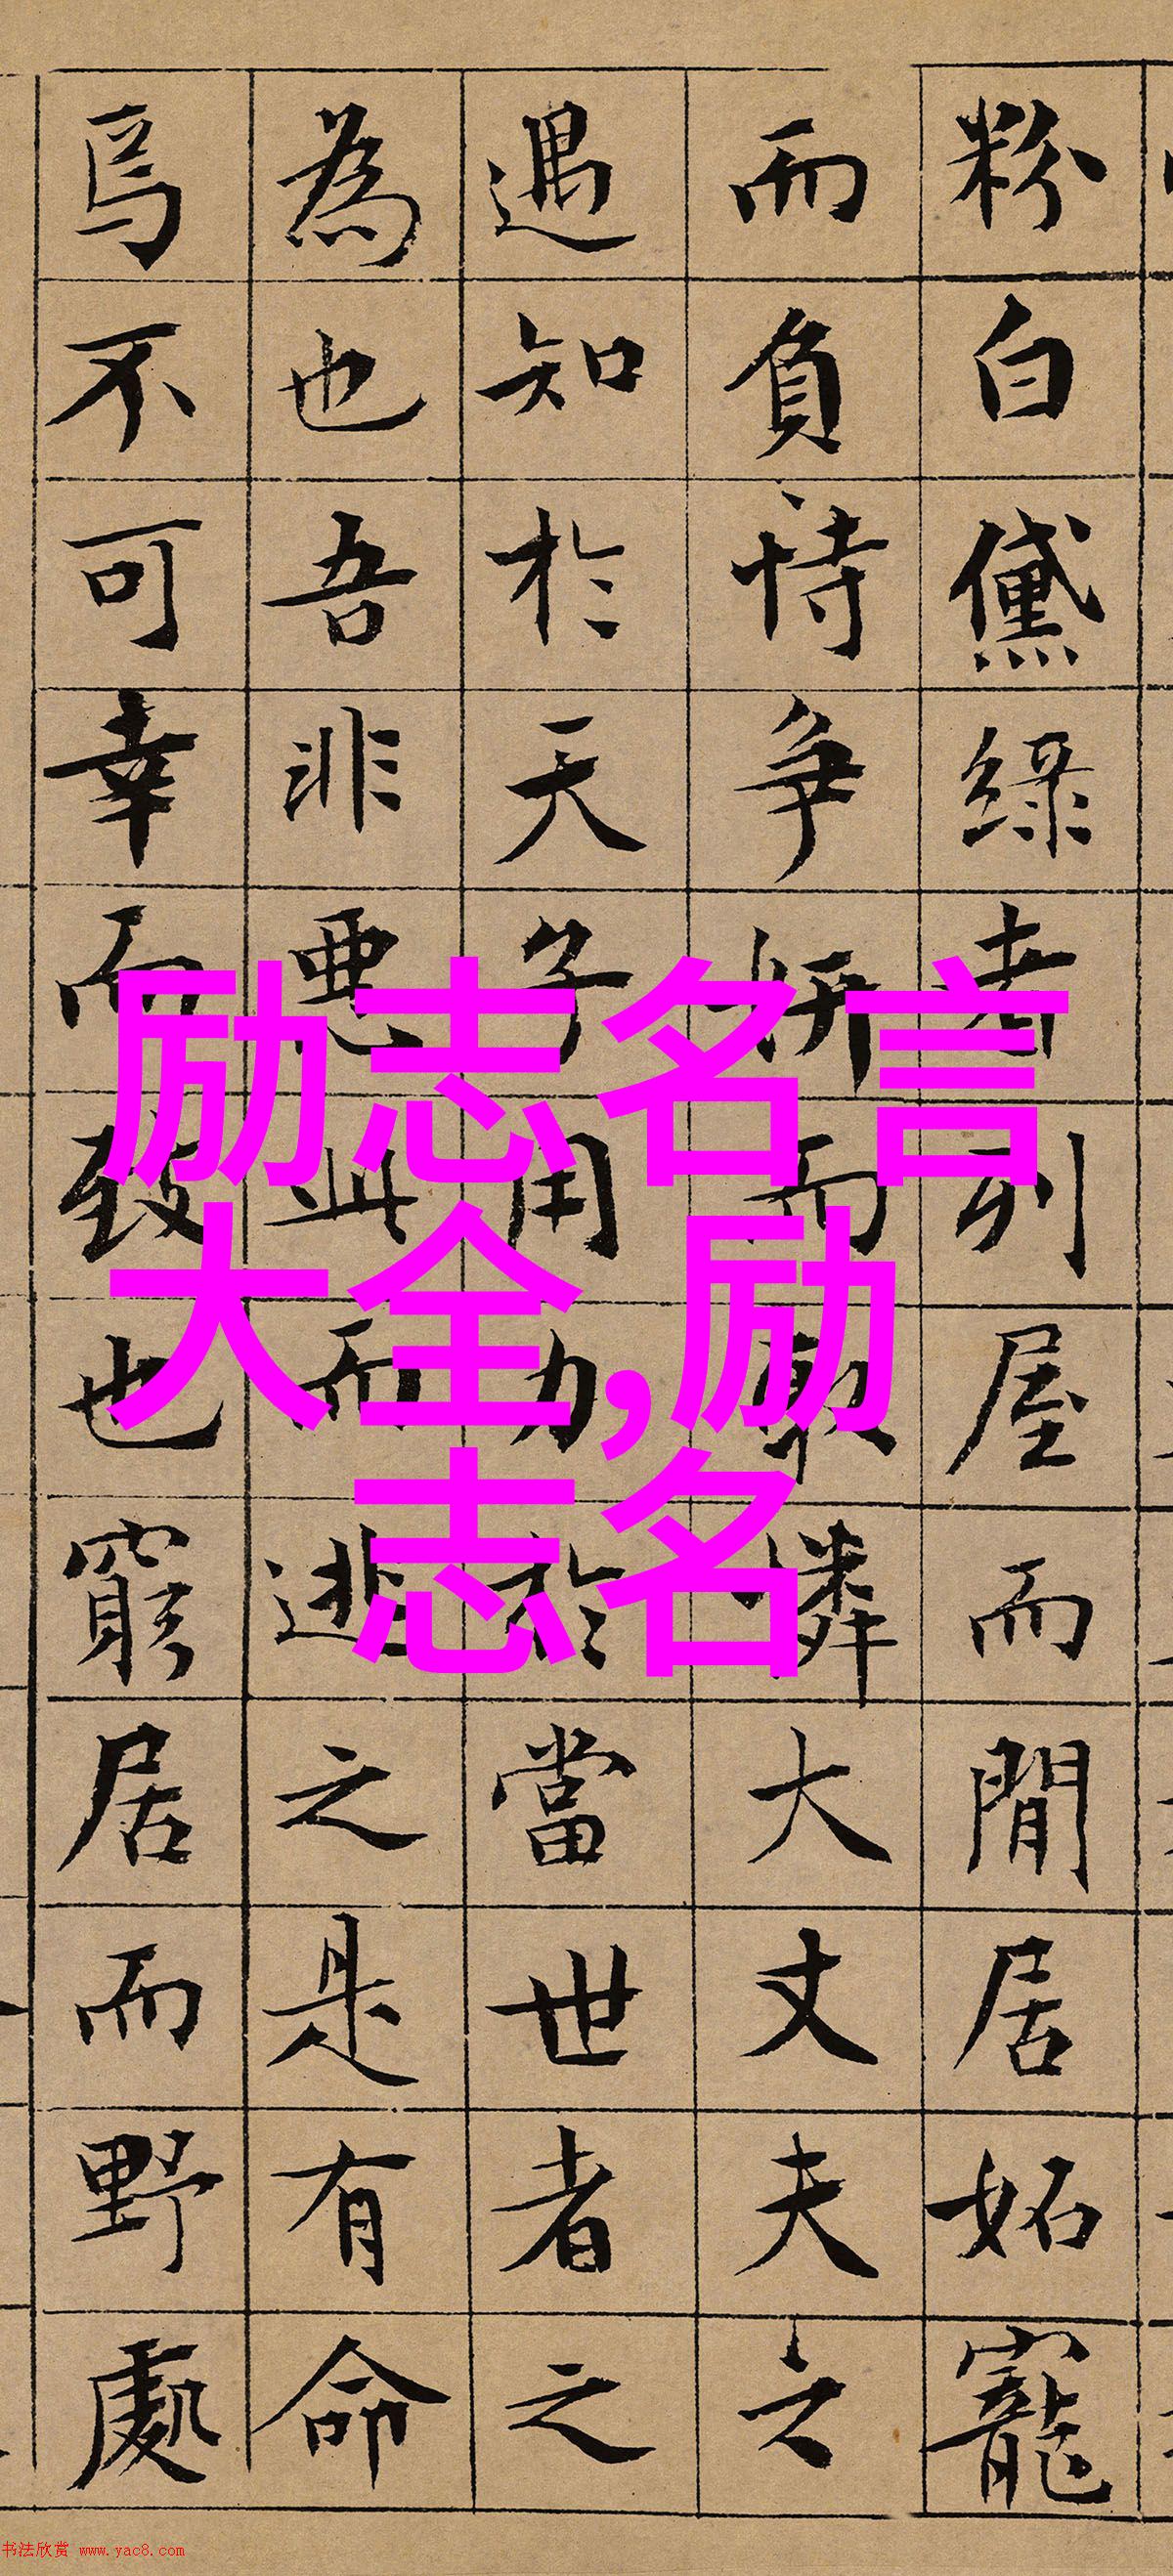 粉白黛綠者列屋而閒居妬寵
而負恃爭妍而取憐大丈夫之
遇知於天子用力於當世者之
為也吾非惡此而逃之是有命
焉不可幸而致也窮居而野處
励志名言
大全,励
志名
书法欣赏 www.yac8.com